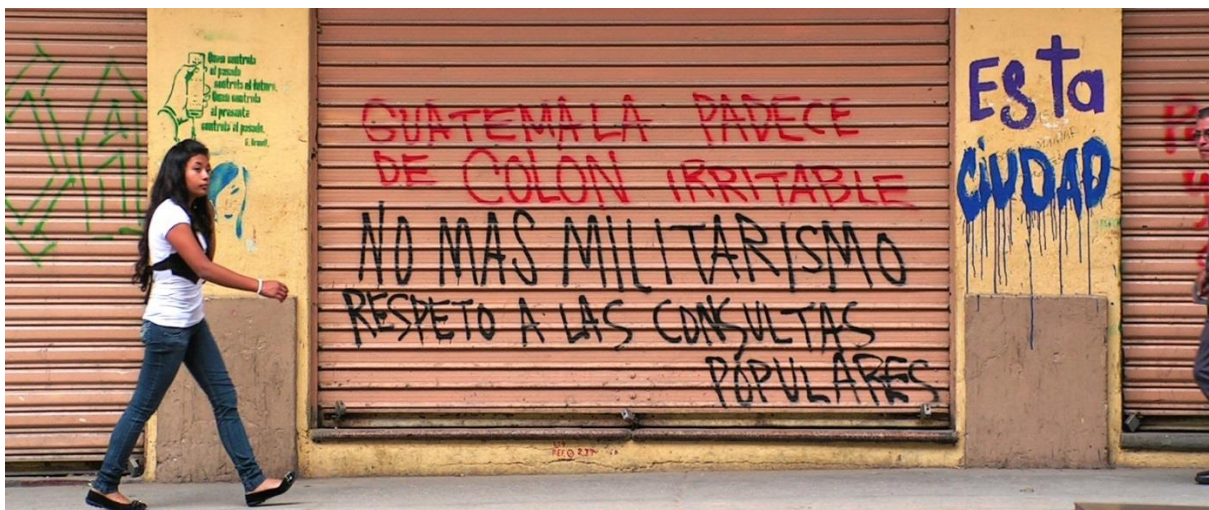 Quien controla
el pasado
controla el futuro.
Quien controla
el presente
controla el pasado.
GUATEMALA PADECE
DE COLON IRRITABLE
NO MAS MILITARISMO
RESPETO A LAS CONSULTAS
POPULARES
Esta
CiUDAD